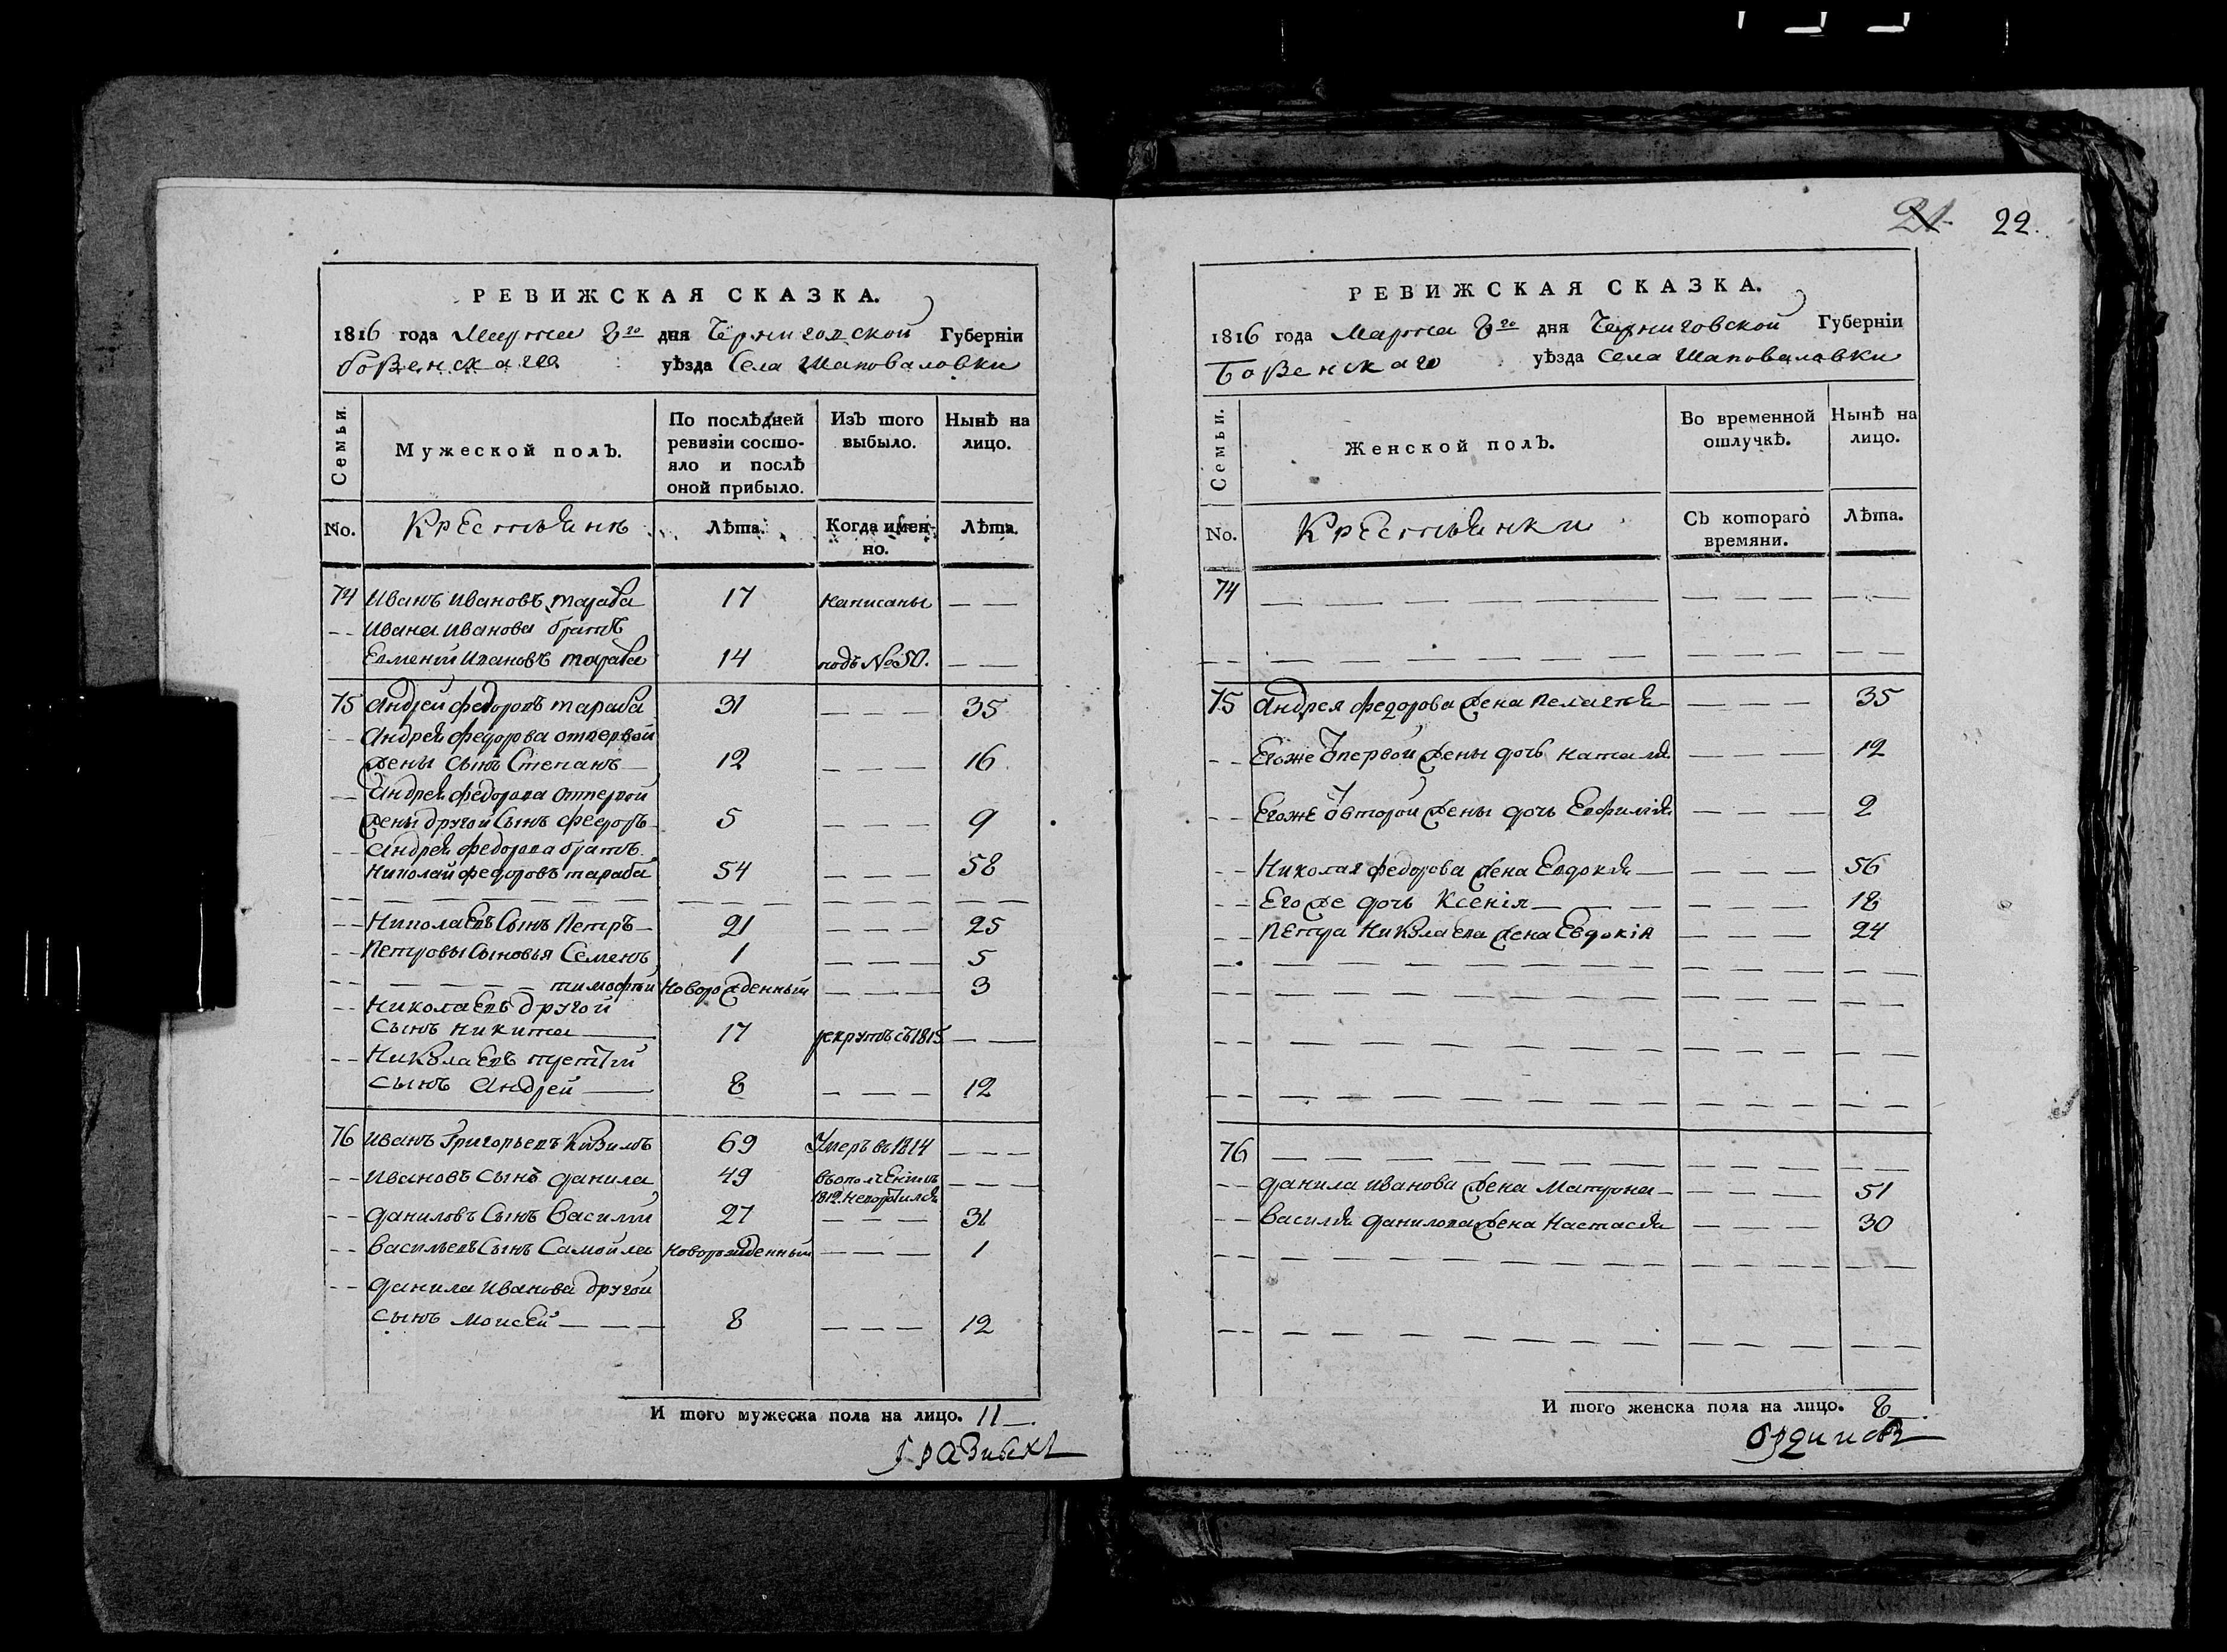 РЕВИЖСКАЯ СКАЗКА.
1816 года Марта 8го дня Черниговской Губерніи
Борзенскаго уѣзда Села Шаповаловки
Семьи.
Мужеской полЪ.
По послѣдней ревизіи состояло и послѣ оной прибыло.
ИзЪ того выбыло.
Нынѣ на лицо.
No.
Крестьянъ
Лѣта.
Когда именно.
Лѣта.
74 Иванъ Ивановъ Тараба 17 написаны — —
-- Ивана Иванова братъ
Евменій Ивановъ Тараба 14 подъ No 50. — —
75 Андрей Федоровъ Тараба 31 — — — 35
-- Андрея Федорова отпервой
жены сынъ Степанъ — 12 — — — 16
-- Андрея Федорова отпервой
жены другой сынъ Федоръ 5 — — — 9
-- Андрея Федорова братъ
Николай Федоровъ Тараба 54 — — — 58
-- Николаевъ сынъ Петръ — 21 — — — 25
-- Петровы сыновья Семенъ 1 — — — 5
-- — — — Тимофѣй Новорожденный — — — 3
-- Николаевъ другой
сынъ Никита — 17 рекрутъ съ 1815 — —
-- Николаевъ третій
сынъ Андрей — 8 — — — 12
76 Иванъ Григорьевъ 69 Умеръ въ 1814 — — —
-- Ивановъ сынъ Данила 49 въополченіи въ — — —
1812.
-- Даниловъ сынъ Василій 27 — — — 31
-- Васильевъ сынъ Самойла Новорожденный — — — 1
-- Данила Иванова другой
сынъ Моисей — — — 8 — — — 12
И того мужеска пола на лицо. 11 —.
21 22.
РЕВИЖСКАЯ СКАЗКА.
1816 года Марта 8го дня Черниговской Губерніи
Борзенскаго уѣзда Села Шаповаловки
Семьи.
Женской полЪ.
Во временной отлучкѣ.
Нынѣ на лицо.
No.
Крестьянки
СЪ котораго времяни.
Лѣта.
74 — — —
75 Андрея Федорова жена Пелагея — — — 35
-- Егоже отпервой жены дочь Наталя — — — 12
-- Егоже отвторой жены дочь Евфимія — — — 2
-- Николая Федорова жена Евдокія — — — 56
-- Егоже дочь Ксенія — — — 18
-- Петра Николаева жена Евдокія — — — 24
76 — — —
-- Данила Иванова жена Матрона — — — 51
-- Василя Данилова жена Настасія — — — 30
И того женска пола на лицо. 8 —.